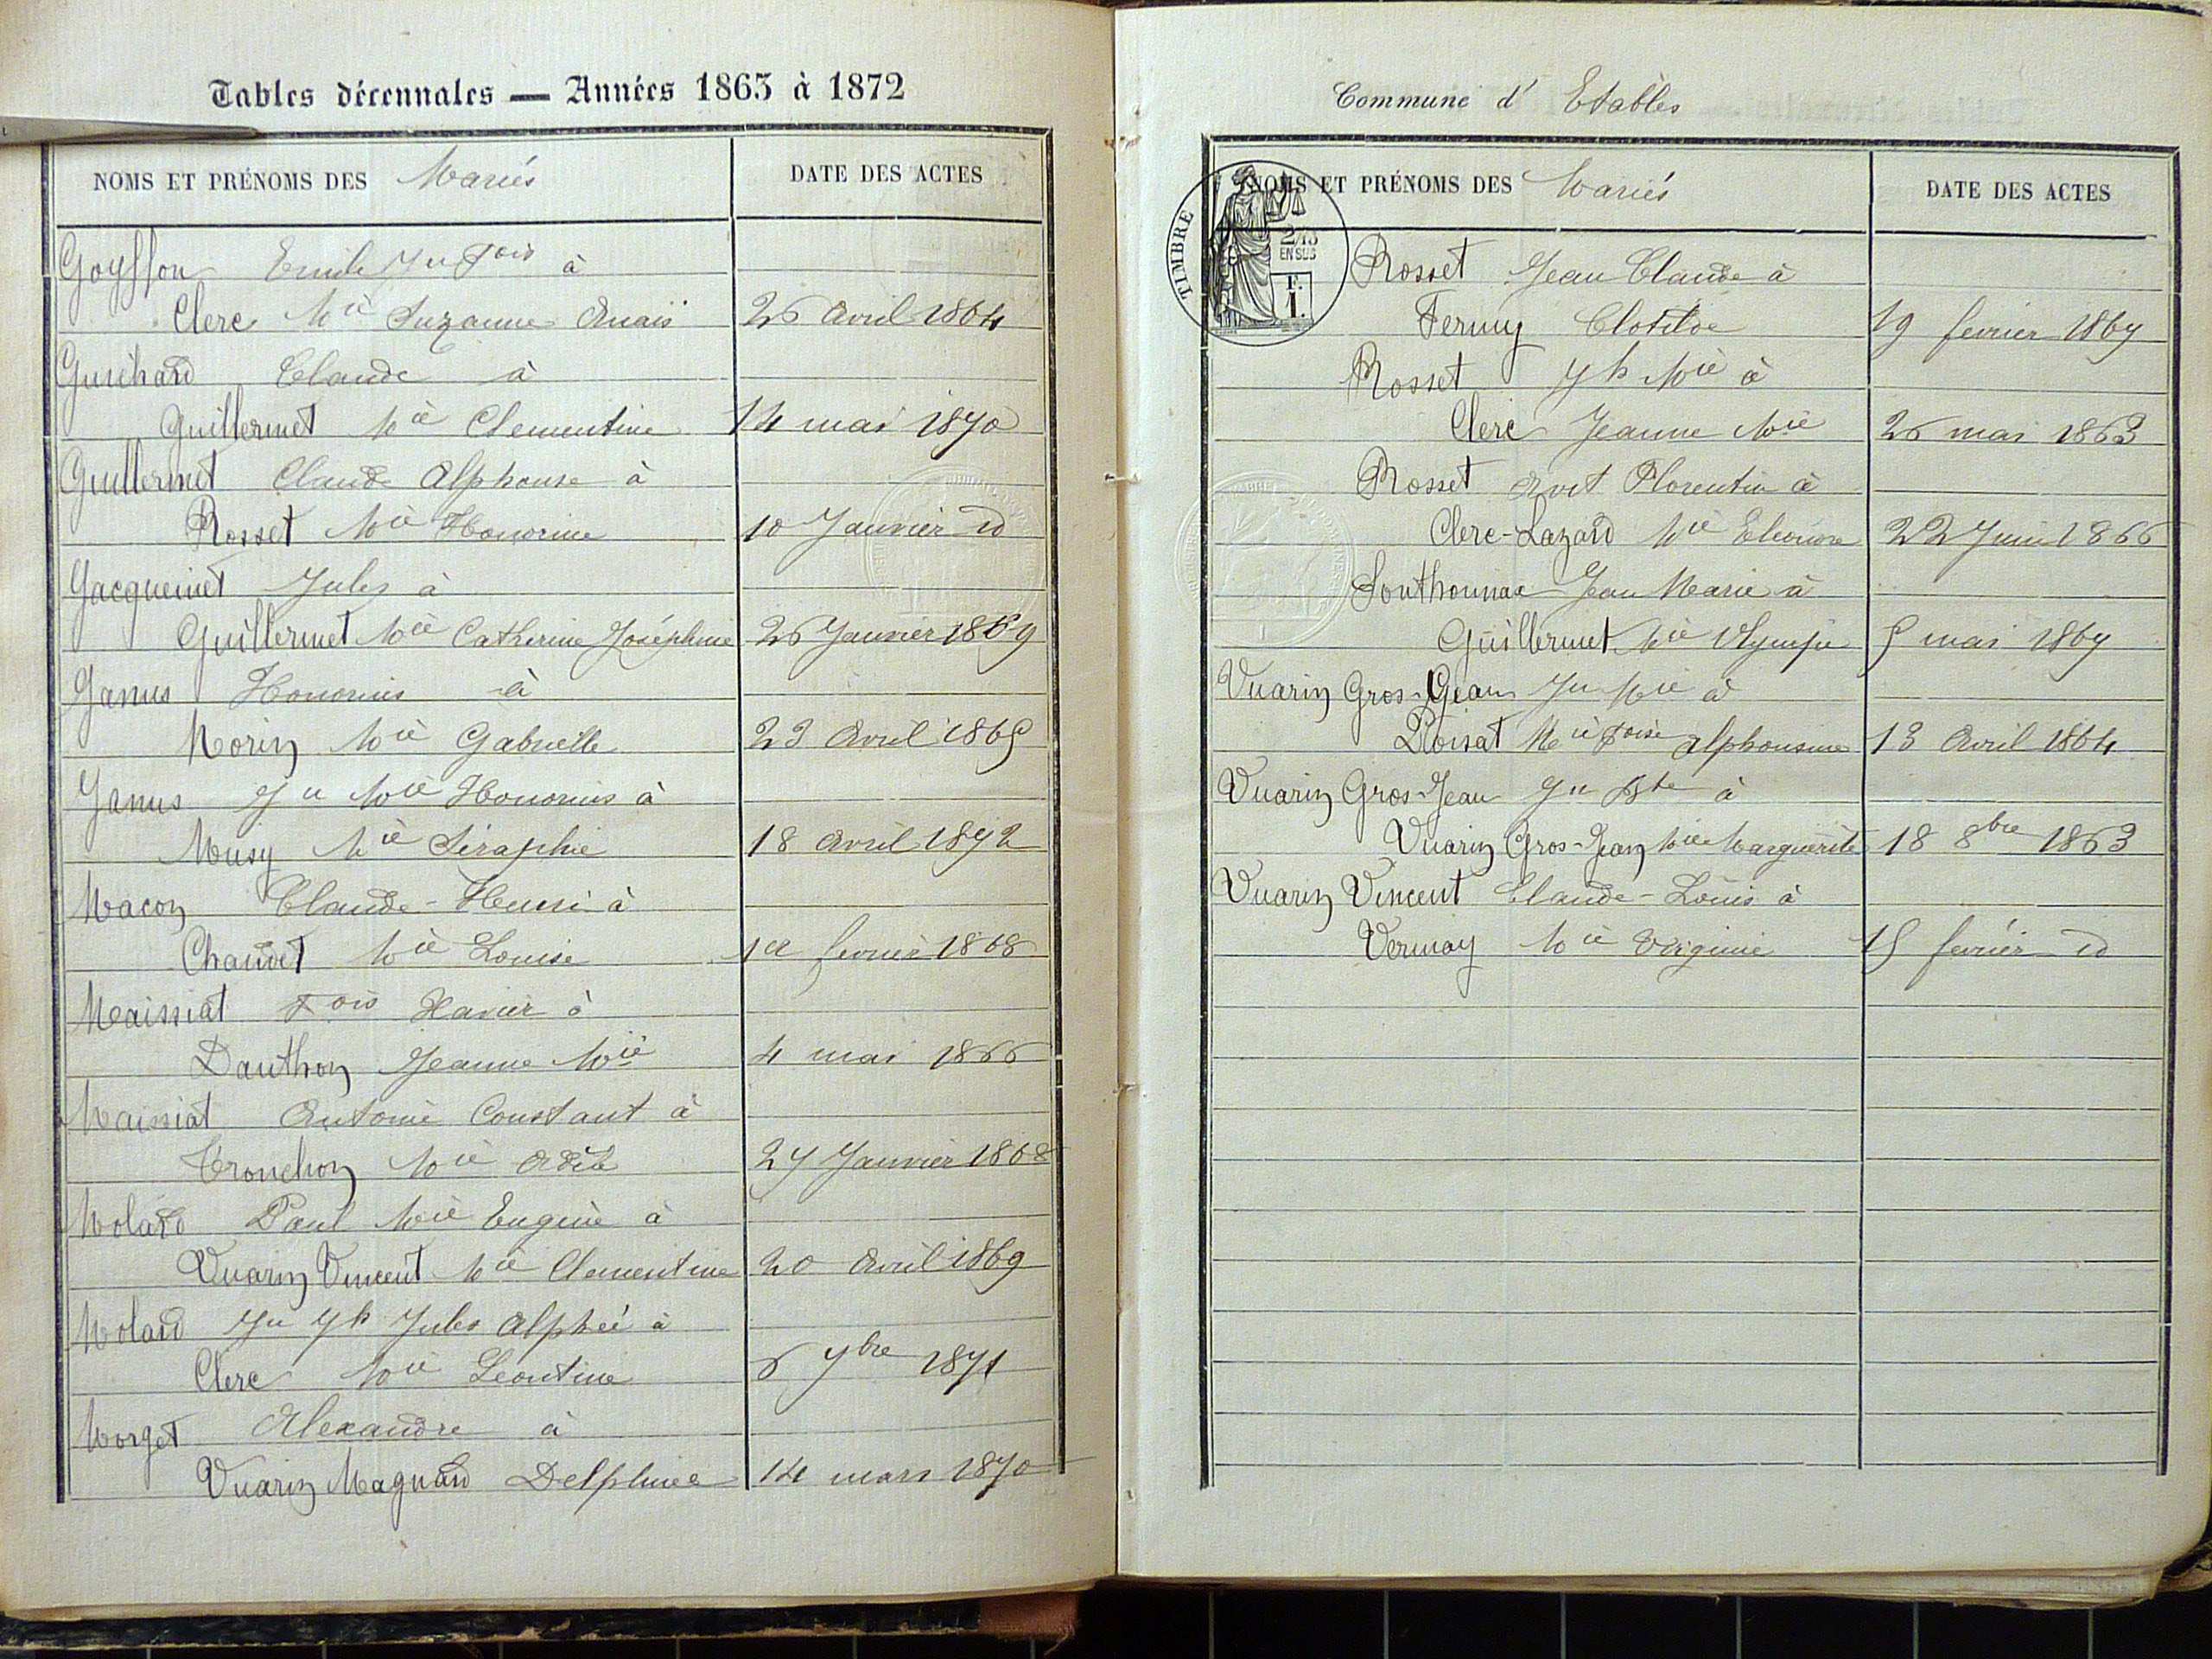 Tables décennales — Années 1863 à 1872
NOMS ET PRÉNOMS DES Mariés DATE DES ACTES
Goyffon Emile Jn Fois à
Clerc Mie Suzanne Anaïs 26 Avril 1864
Guichard Claude à
Guillermet Mie Clementine 14 mai 1870
Guillermet Claude Alphonse à
Rosset Mie Honorine 10 Janvier do
Jacquemet Jules à
Guillermet Mie Catherine Joséphine 26 Janvier 1869
Janus Honorius à
Morin Mie Gabrielle 23 Avril 1865
Janus Jn Mie Honorius à
Musy Mie Séraphie 18 Avril 1872
Macon Claude-Henri à
Chanvet Mie Louise 1er fevrier 1868
Maissiat Fois Xavier à
Dauthon Jeanne Mie 4 mai 1866
Maissiat Antoine Constant à
Tronchon Mie Adèle 27 Janvier 1868
Molard Paul Mie Eugène à
Vuarin Vincent Mie Clementine 20 Avril 1869
Molard Jn Jh Jules Alphée à
Clerc Mie Léontine 6 7bre 1871
Morget Alexandre à
Vuarin Magnard Delphine 14 mars 1870
Commune d' Etables
TIMBRE
2/10
EN SUS
F.
1.
NOMS ET PRÉNOMS DES Mariés DATE DES ACTES
Rosset Jean Claude à
Ferruy Clotilde 19 fevrier 1867
Rosset Jh Mie à
Clerc Jeanne Mie 26 mai 1863
Rosset Florentin à
Clerc-Lazard Mie Eleonore 22 Juin 1866
Southonnax Jean Marie à
Guillermet Mie Olympie 5 mai 1867
Vuarin Gros-Jean Jn Mie à
Poisat Mie Foise Alphonsine 13 Avril 1864
Vuarin Gros-Jean Jn Bte à
Vuarin Gros-Jean Mie Marguerite 18 8bre 1863
Vuarin Vincent Claude-Louis à
Vernay Mie Virginie 15 fevrier do